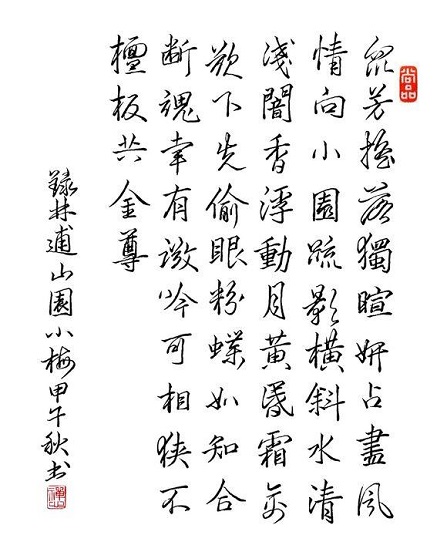 尚品
眾芳搖落獨暄妍占盡風
情向小園疏影橫斜水清
淺闇香浮動月黃昏霜禽
欲下先偷眼粉蝶如知合
断魂幸有微吟可相狭不
檀板共金尊
録林逋山園小梅甲午秋书